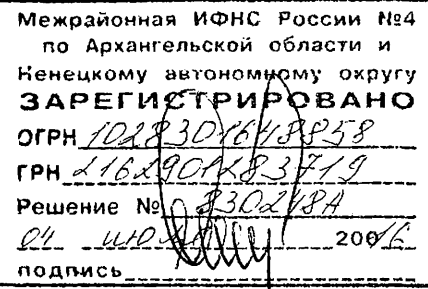 Межрайонная ИФНС России №4
по Архангельской области и
Ненецкому автономному округу
ЗАРЕГИСТРИРОВАНО
ОГРН 1028301648858
ГРН 2162901283719
Решение № 830248А
04 200
подпись